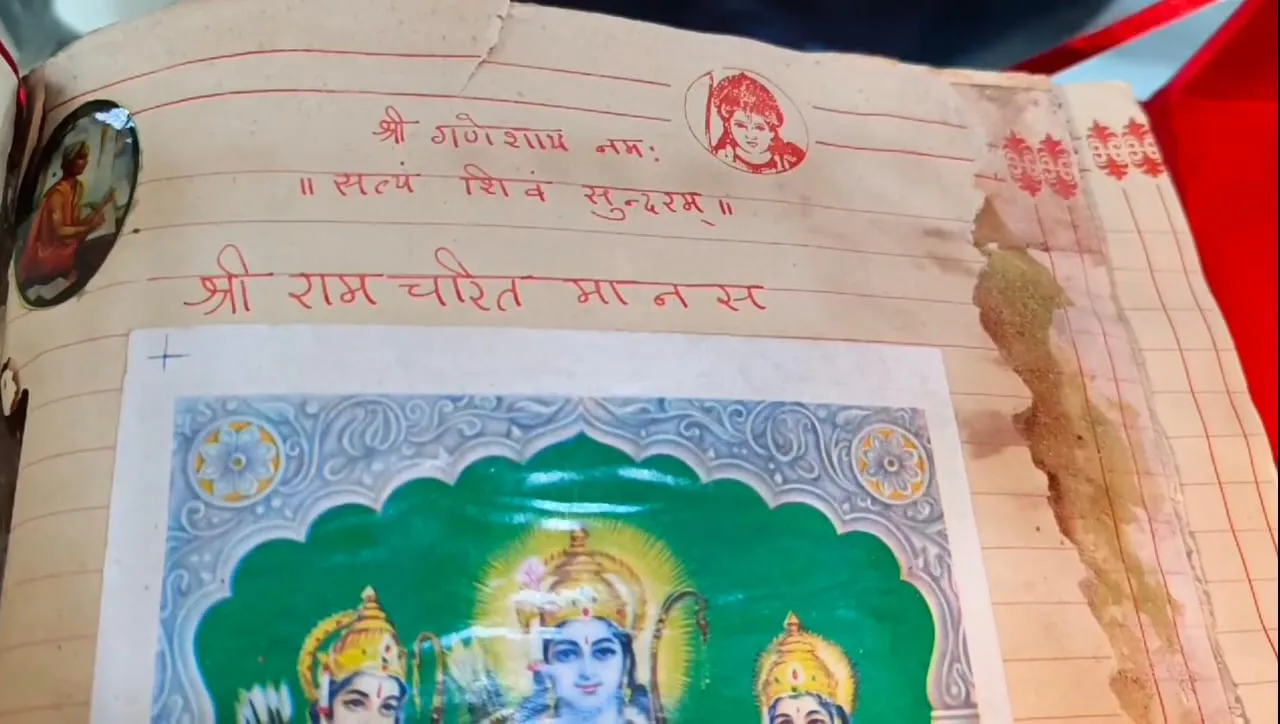 श्री गणेशाय नमः
॥ सत्यं शिवं सुन्दरम् ॥
श्री राम चरित मानस